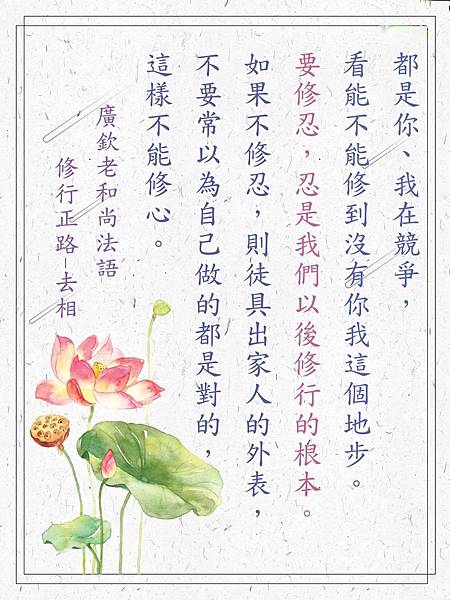 都是你、我在競爭，
看能不能修到沒有你我這個地步。
要修忍，忍是我們以後修行的根本。
如果不修忍，則徒具出家人的外表，
不要常以為自己做的都是對的，
這樣不能修心。
廣欽老和尚法語
修行正路－去相